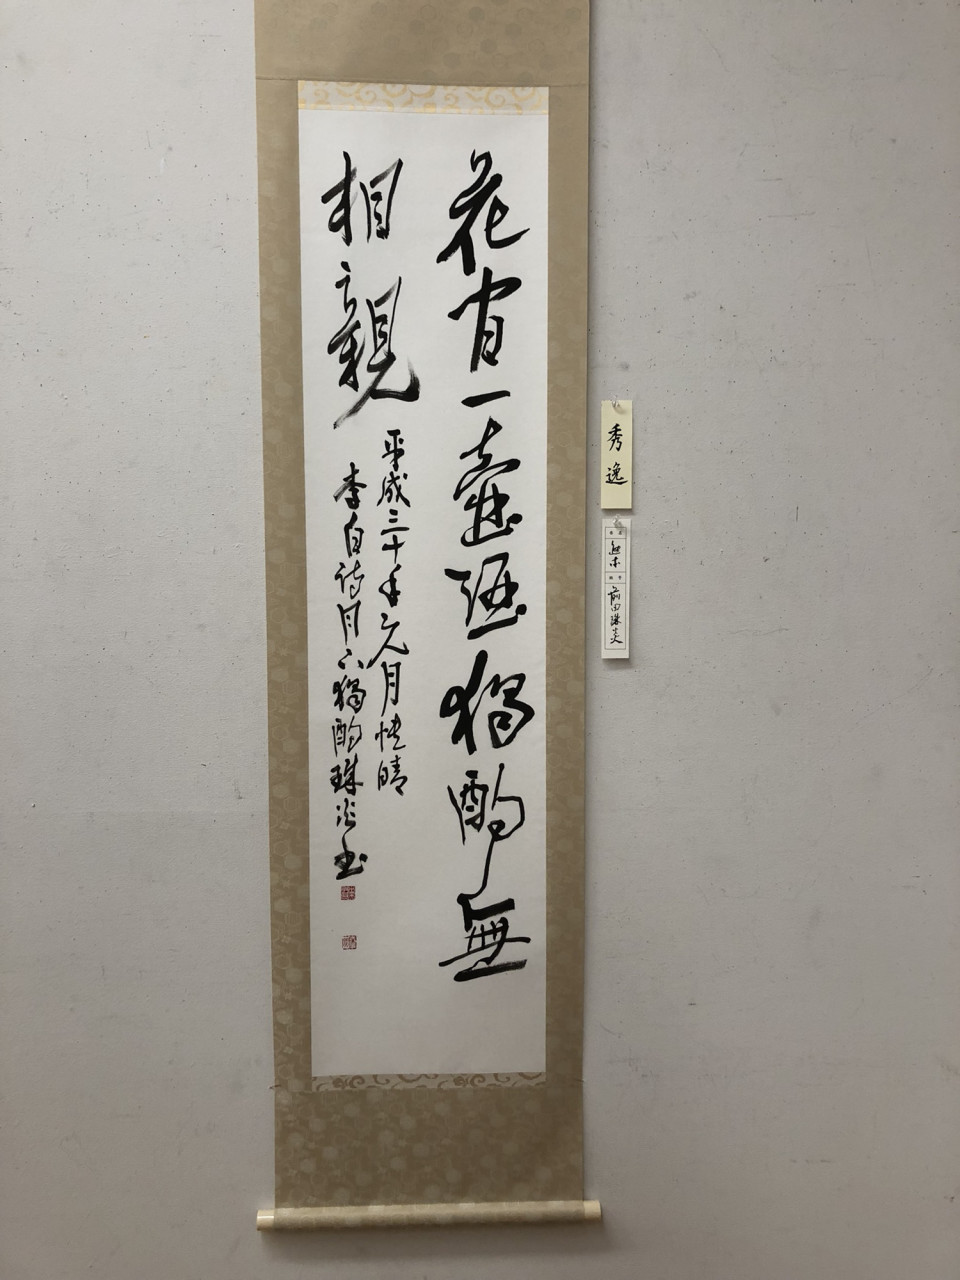 花間一壺酒獨酌無
相親
平成三十年元月快晴
李白詩月下獨酌珠炎書
秀逸
熊本
前田珠炎